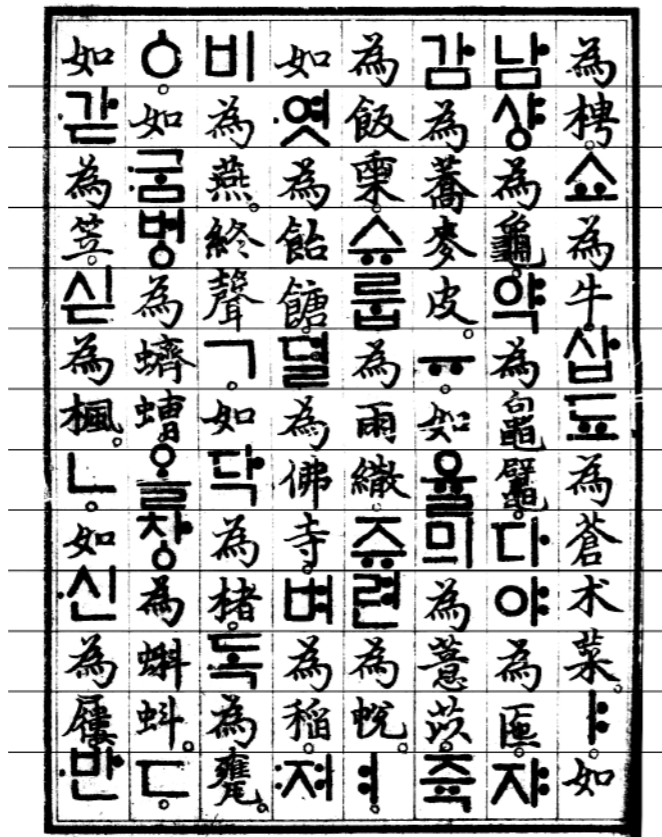 為梬。쇼為牛。삽됴為蒼朮菜。ㅑ。如
남샹為龜。약為𪓟鼊。다야為匜。쟈
감為蕎麥皮。ㅠ。如율믜為薏苡。쥭
為飯𣖄。슈룹為雨繖。쥬련為帨。ㅕ。
如엿為飴餹。뎔為佛寺。벼為稻。져
비為燕。終聲ㄱ。如닥為楮。독為甕。
ㆁ。如굼벙為蠐螬。올창為蝌蚪。ㄷ。
如갇為笠。싣為楓。ㄴ。如신為屨。반